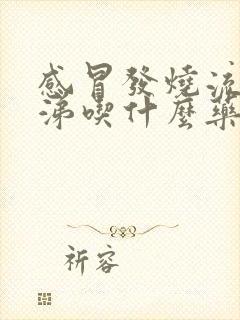 感冒發燒流
涕喫什麼藥
祈容